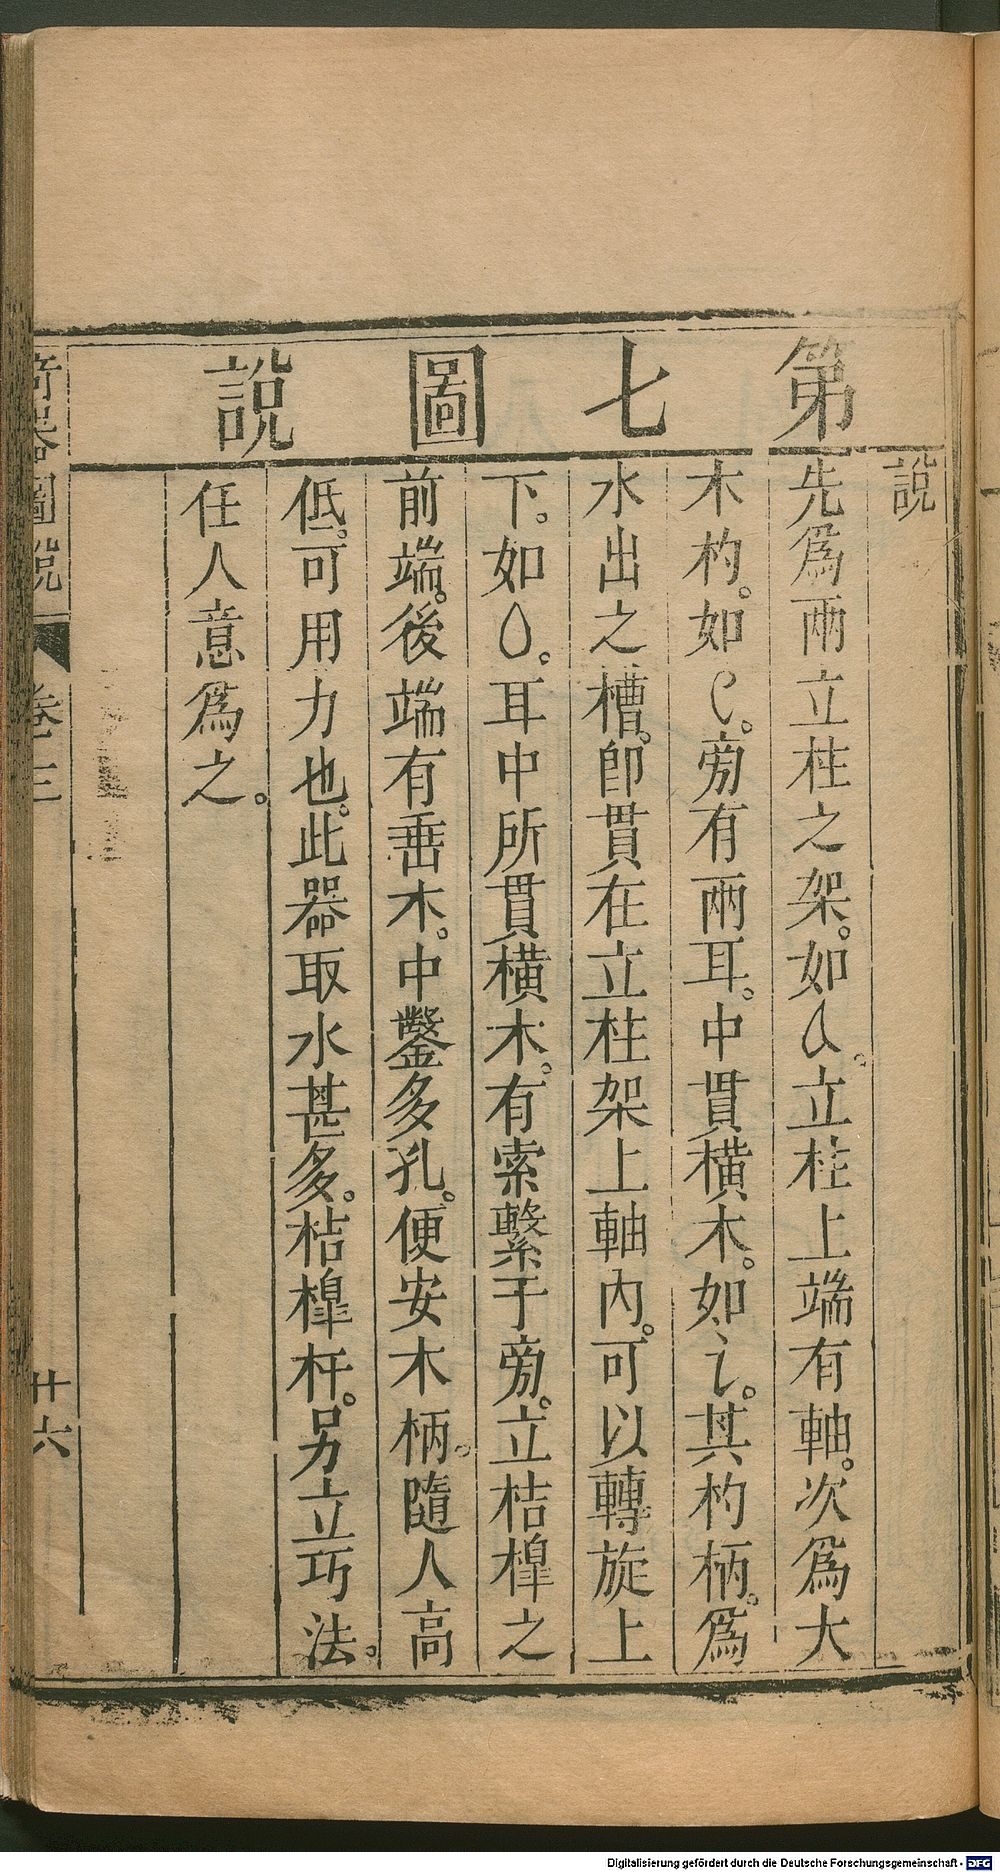 第七圖說
說
先爲兩立柱之架。如。立柱上端有軸。次爲大
木杓。如。旁有兩耳。中貫橫木。如。其杓柄。爲
水出之槽。卽貫在立柱架上軸內。可以轉旋上
下。如。耳中所貫橫木。有索繫于旁。立桔槹之
前端。後端有垂木。中鑿多孔。便安木柄。隨人高
低。可用力也。此器取水甚多。桔槹杆。另立巧法。
任人意爲之。
奇器圖說 卷三 廿六
Digitalisierung gefördert durch die Deutsche Forschungsgemeinschaft - DFG